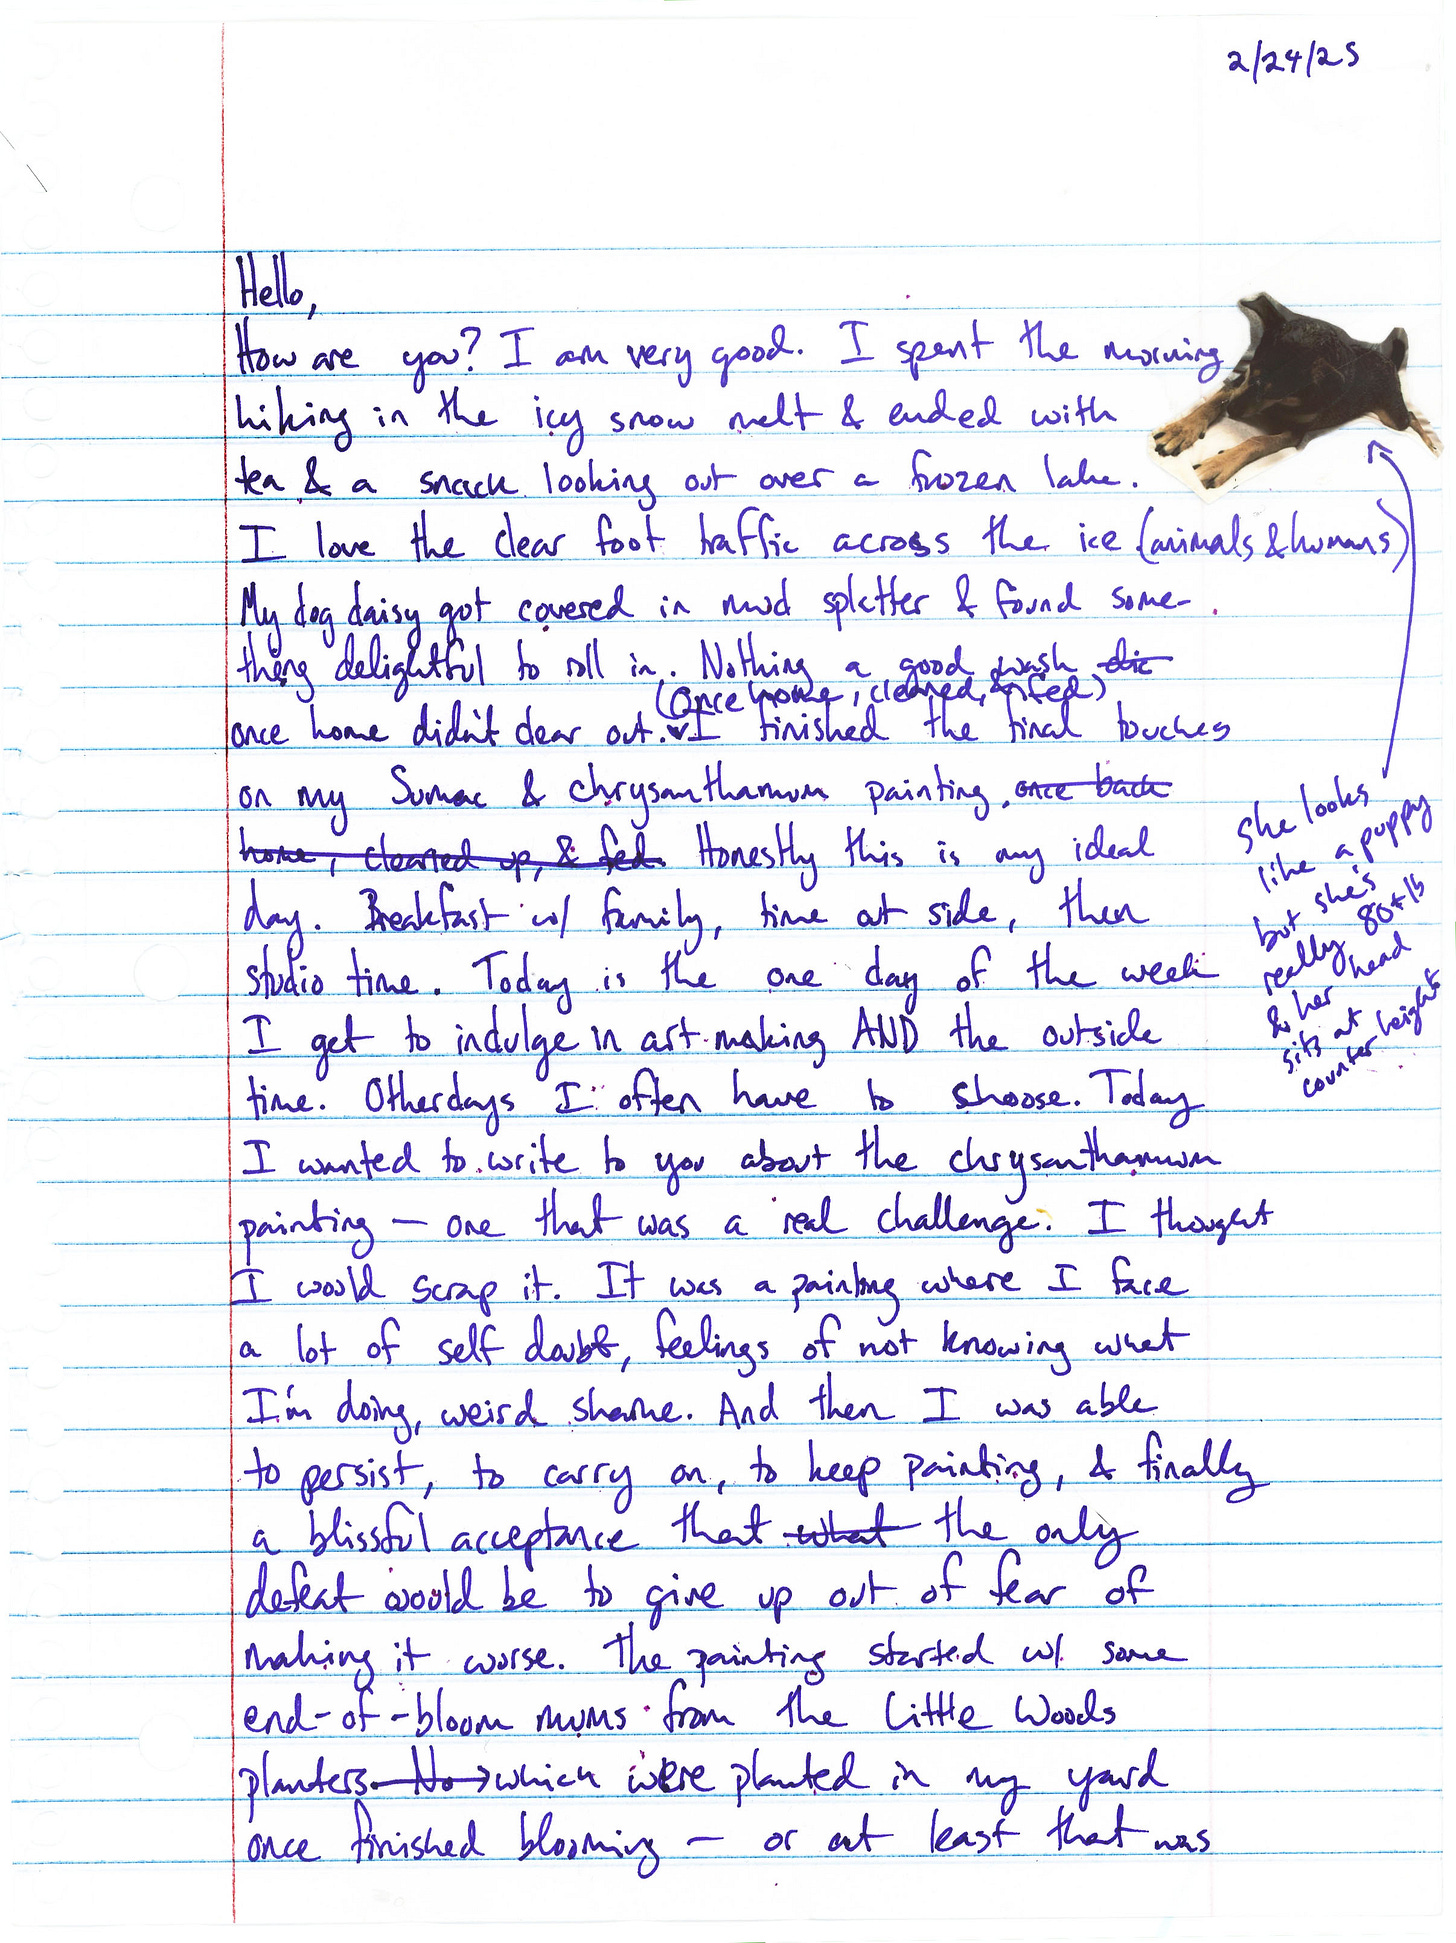 2/24/25
Hello,
How are you? I am very good. I spent the morning
hiking in the icy snow melt & ended with
tea & a snack looking out over a frozen lake.
I love the clear foot traffic across the ice (animals & humans)
My dog daisy got covered in mud splatter & found some-
thing delightful to roll in. Nothing a good wash
(Once home, cleaned, & fed)
once home didn't clear out. I finished the final touches
on my Sumac & chrysanthamum painting. once back
home, cleaned up, & fed. Honestly this is my ideal
day. Breakfast w/ family, time out side, then
studio time. Today is the one day of the week
I get to indulge in art making AND the outside
time. Otherdays I often have to shoose. Today
I wanted to write to you about the chrysanthamum
painting — one that was a real challenge. I thought
I would scrap it. It was a painting where I face
a lot of self doubt, feelings of not knowing what
I'm doing, weird shame. And then I was able
to persist, to carry on, to keep painting, & finally
a blissful acceptance that what the only
defeat would be to give up out of fear of
making it worse. The painting started w/ some
end-of-bloom mums from the Little Woods
planters. No which were planted in my yard
once finished blooming — or at least that was
she looks
like a puppy
but she's
really 80+lb
& her head
sits at
counter height